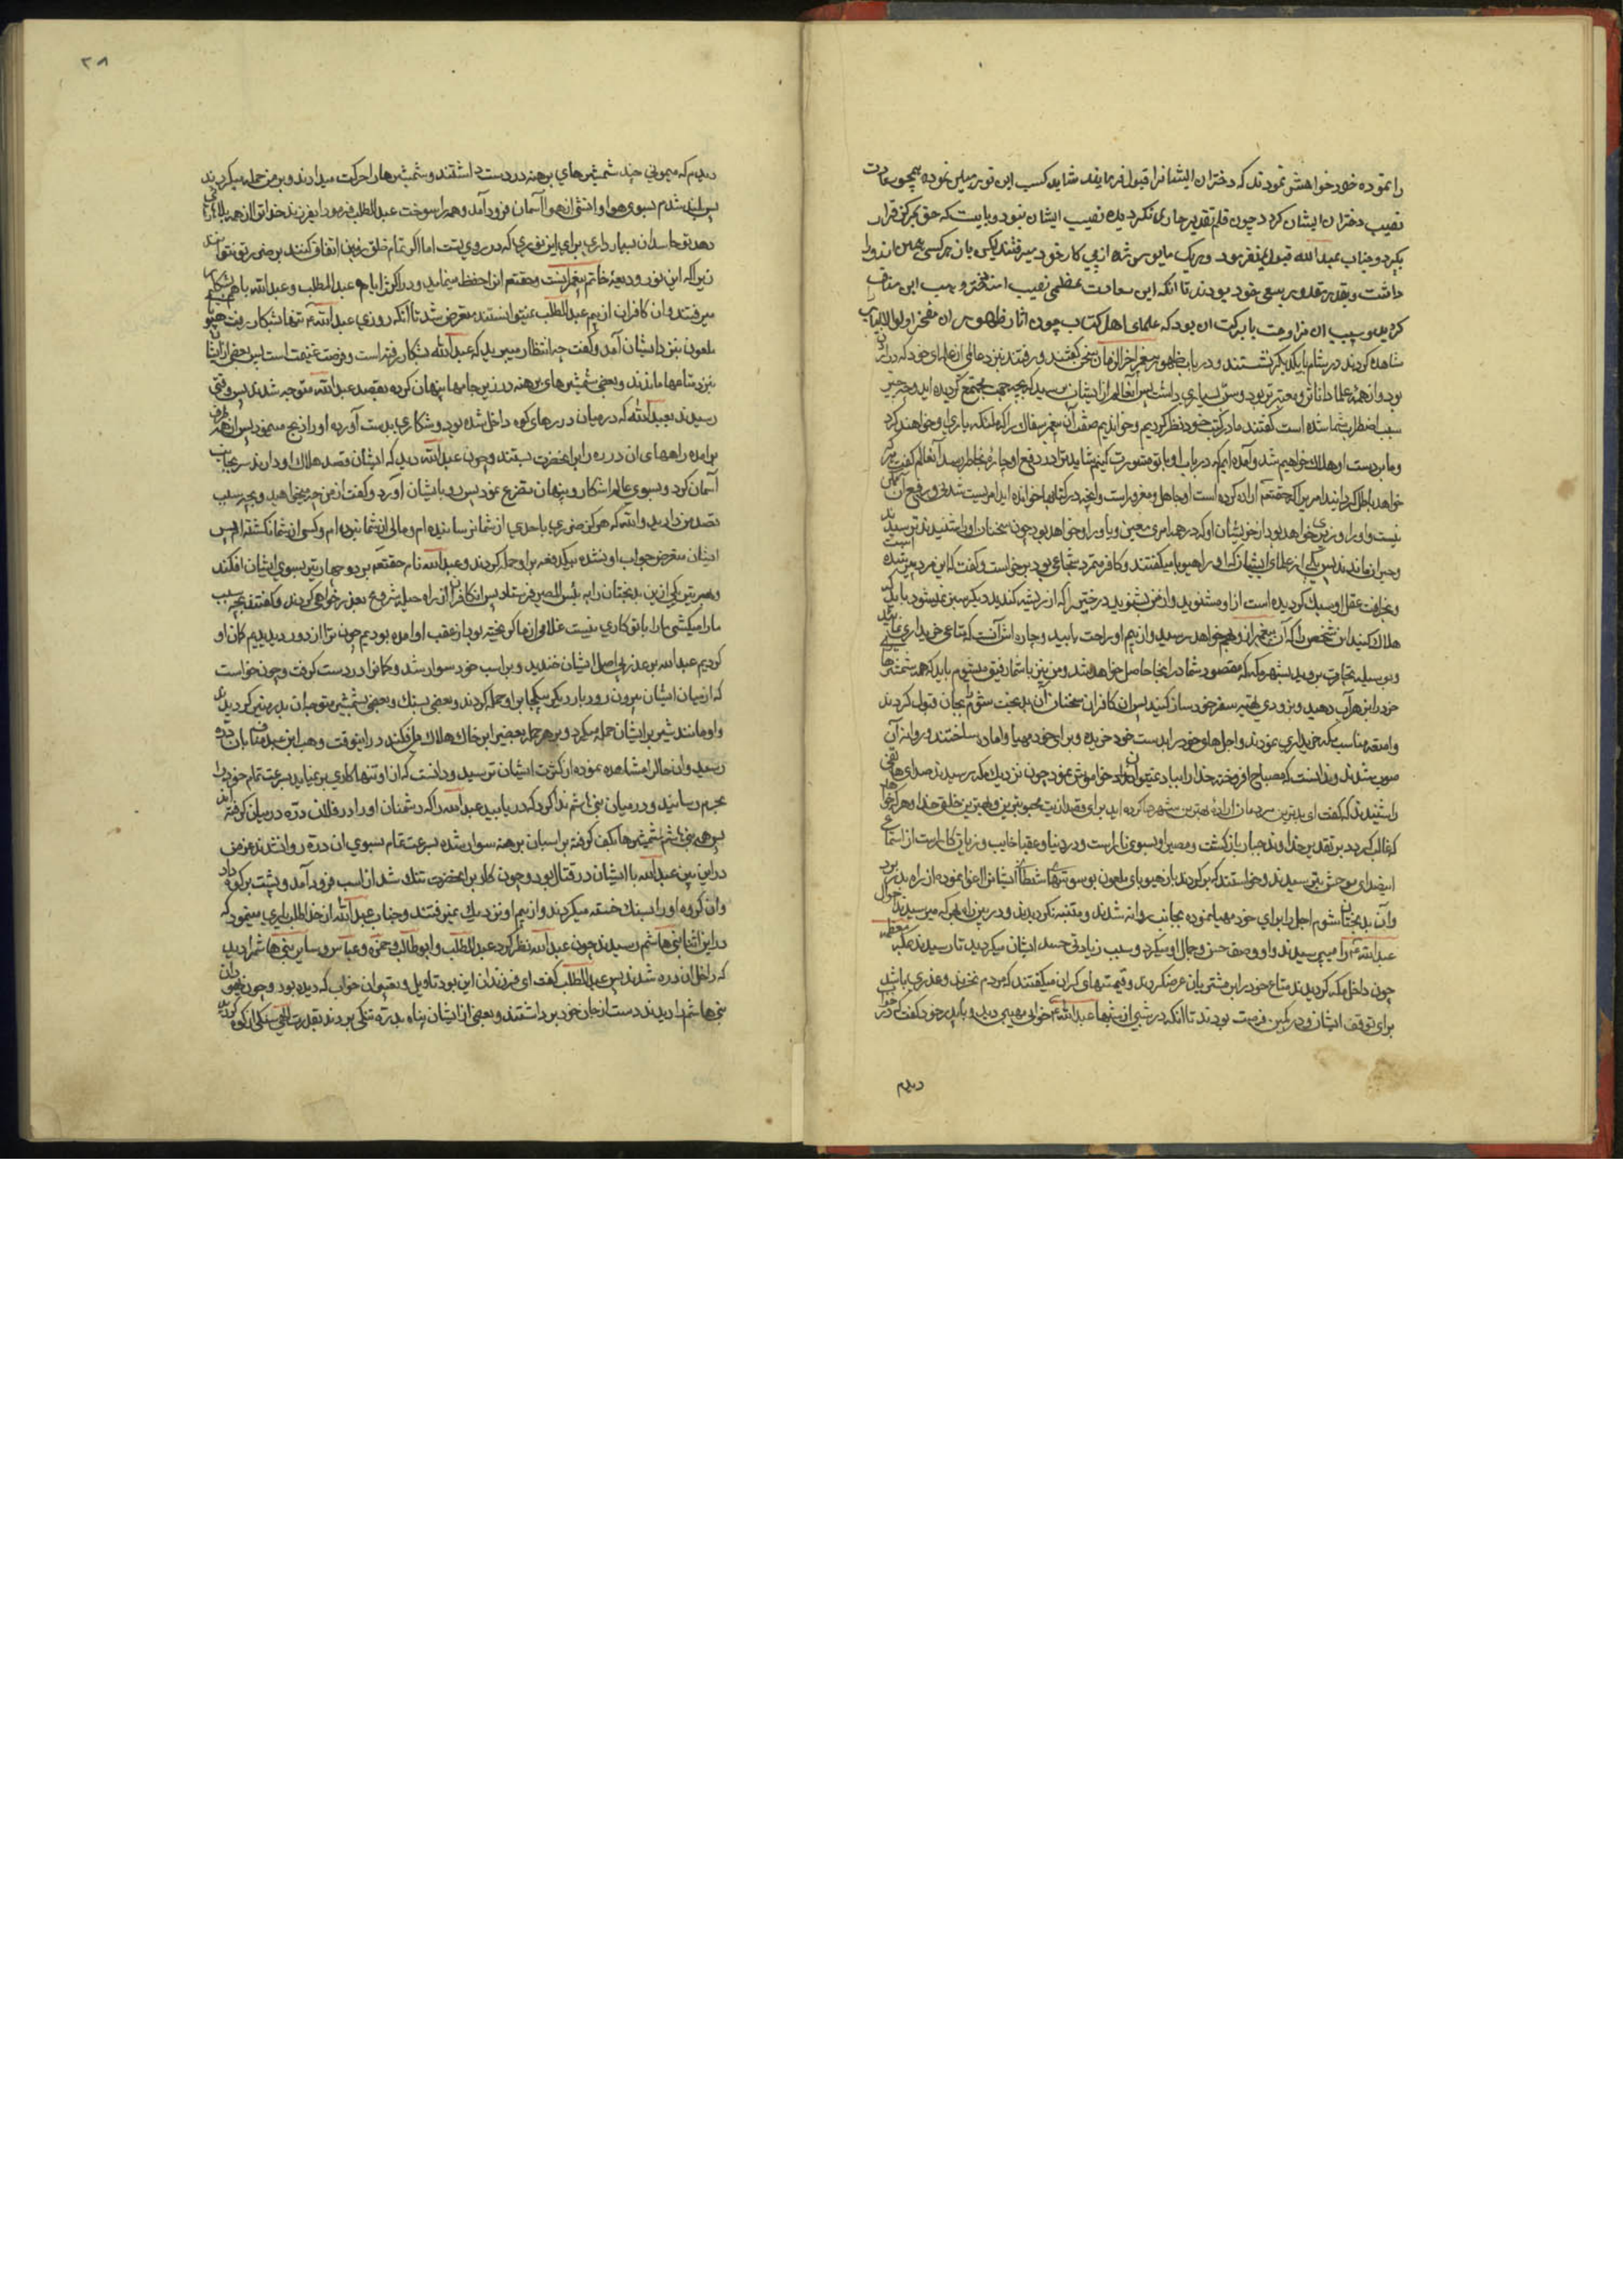 را نموده خود خواهش نمودند که دختران ایشانرا قبول فرمایند شاید کسب این نور مبین نموده همچو سعادت
نصیب دختران ایشان کردد چون قلم تقدیر جاری نکردیده نصیب ایشان نبود و بایست که حق بمرکز قرار
بکیرد و جناب عبد الله قبول نمیفرمود و هریک مایوس شده از پی کار خود میرفتند لیکن بان هر کسی همین اندوه را
داشت و بقدر مقدور بسعی خود بودند تا انکه این سعادت عظمی نصیب امنه دختر وهب ابن مناف
کردید و سبب ان مزاوجت با برکت ان بود که علمای اهل کتاب چون اثار ظهور ان مفخر اولوالالباب را
مشاهده کردند در شام با یکدیکر نشستند و در باب ظهور پیغمبر اخر الزمان سخن کفتند و رفتند نزد عالمی از علمای خود که در اردن
بود و از همه علما داناتر و معتبرتر بود و سن بسیاری داشت پس آنعالم از ایشان پرسید که بچه جهت مجتمع کردیده اید و چه چیز
سبب اضطراب شما شده است کفتند ما در کتب خود نظر کردیم و خواندیم صفت آن پیغمبر سفاک را که ملائکه یاری او خواهند کرد
و ما بر دست او هلاک خواهیم شد و آمده ایم که در باب او با تو مشورت کنیم شاید ترا در دفع او چاره بخاطر رسد آنعالم کفت هر که
خواهد باطل کرداند امریرا که حقتعالی اراده کرده است او جاهل و مغرور است و آنچه در کتابها خوانده اید امریست شدنی و رفع آن ممکن
نیست و او را وزیری خواهد بود از خویشان او که در همه امری معین و یاور او خواهد بود چون سخنان او را شنیدند ترسیدند
و حیران ماندند پس یکی از علمای ایشان که او را هیوبا میکفتند و کافر متمرد شجاعی بود برخواست و کفت که این مرد پیر شده است
و خرافت عقل او سبک کردیده است از او مشنوید و از من بشنوید درختی را که از ریشه کندید دیکر سبز نمیشود باید که
هلاک کنید این شخص را که آن پیغمبر از او بهم خواهد رسید و از بیم او راحت یابید و چاره اش آنست که متاعی خریداری نمائید
و بوسیله تجارت بروید بشهر مکه که مقصود شما در انجا حاصل خواهد شد و من نیز با شما رفیق میشوم باید که همه شمشیرهای
خود را بزهر آب دهید و بزودی تهیه سفر خود ساز کنید پس ان کافران سخنان آن بدبخت شوم را بجان قبول کردند
و امتعه مناسب مکه خریداری نمودند و اجلهای خود را بدست خود خریده و برای خود مهیا و اماده ساختند و روانه آن
صوب شدند و ندانستند که مصباح افروخته خدا را بباد نمیتوان خواموش نمود چون نزدیک مکه رسیدند صدای هاتفی
را شنیدند که کفت ای بدترین مردمان اراده بهترین شهرها کرده اید برای قصد اذیت محبوبترین و بهترین خلق خدا و هر که خواهد
که غالب کردد بر تقدیر خداوند جبار بازکشت و مصیر او بسوی نار است و در دنیا و عقبا خایب و زیانکار است از استماع
این صدای موحش بترسیدند و خواستند که برکردند باز هیوبای ملعون بوسوسهای شیطانی ایشانرا اغوا نموده از راه بدر برد
و آن بدبختان شوم اجل را برای خود مهیا نموده بجانب روانه شدند و متنبه نکردیدند و در بین راه بهر که میرسیدند احوال
عبد الله را میپرسیدند و او وصف حسن و جمال او میکرد و سبب زیادتی حسد ایشان میکردید تا رسیدند بمکه معظمه
چون داخل مکه کردیدند متاع خود را بر مشتریان عرضه کردند و قیمتهای کران میکفتند که مردم نخرند و عذری باشد
برای توقف ایشان و در کمین فرصت بودند تا انکه در شبی از شبها عبد الله خوابی مهیبی دید و با پدر خود کفت که در خواب
دیدم
۲۸
دیدم که میمونی چند شمشیرهای برهنه در دست داشتند و شمشیرها را حرکت میدادند و بر من حمله میکردند
پس بلند شدم بسوی هوا و اتشی از هوا آسمان فرود آمد و همه را سوخت عبد المطلب فرمود ایفرزند خدا ترا از همه بلاها نجات
دهد تو حاسدان بسیار داری برای این نوری که در روی تست اما اکر تمام خلق زمین اتفاق کنند بر ضرر تو نتوانند
زیرا که این نور ودیعه خاتم پیغمبرانست و حقتعالی انرا حفظ مینماید و در اکثر ایام عبد المطلب و عبد الله باهم بشکار
میرفتند و ان کافران از بیم عبد المطلب نمیتوانستند متعرض شد تا آنکه روزی عبد الله تنها بشکار رفت هیوبای
ملعون نزد ایشان آمد و کفت چه انتظار میبرید که عبد الله بشکار رفته است و فرصت غنیمت است پس بعضی از ایشان
نزد متاعها ماندند و بعضی شمشیرهای برهنه در زیر جامها پنهان کرده بقصد عبد الله متوجه شدند پس وقتی
رسیدند بعبد الله که در میان درهای کوه داخل شده بود و شکاری بدست آورده او را ذبح مینمود پس از هر طرف
برامده راههای ان دره را بر انحضرت بستند و چون عبد الله دید که ایشان قصد هلاک او دارند سر بجانب
آسمان کرد و بسوی عالم اشکار و پنهان تضرع نمود پس رو بایشان آورد و کفت از من چه میخواهید و بچه سبب
قصد من دارید والله که هرکز ضرری باحدی از شما نرسانیده ام و مالی از شما نبرده ام و کسی از شما نکشته ام پس
ایشان متعرض جواب او نشده بیکدفعه بر او حمله کردند و عبد الله نام حقتعالی برد و چهار تیر بسوی ایشان افکند
و هر تیری یکی ازین بدبختان را به بئس المصیر فرستاد پس ان کافران از راه حیله شروع بعذر خواهی کردند و کفتند بچه سبب
ما را میکشی ما را با تو کاری نیست غلامی از ما کریخته بود از عقب او امده بودیم چون ترا از دور دیدیم کمان او
کردیم عبد الله بر عذر بی اصل ایشان خندید و بر اسب خود سوار شد و کمانرا در دست کرفت و چون خواست
که از میان ایشان بیرون رود بار دیکر بیکجا بر او حمله کردند و بعضی بسنک و بعضی بشمشیر متوجه ان بدر منیر کردیدند
و او مانند شیر بر ایشان حمله میکرد و بر هر حمله بعضیرا بر خاک هلاک می افکند در اینوقت وهب ابن عبد مناف بان دره
رسید و ان حالرا مشاهده نموده از کثرت ایشان ترسید و دانست که از او تنها کاری بر نمیاید بسرعت تمام خود را
بحرم رسانید و در میان بنی هاشم ندا کرد که دریابید عبد الله را که دشمنان او را در فلان دره در میان کرفته اند
پس همه بنی هاشم شمشیرها بکف کرفته بر اسبان برهنه سوار شده بسرعت تمام بسوی ان دره روانه شدند
در این بین عبد الله با ایشان در قتال بود و چون کار بر انحضرت تنک شد از اسب فرود آمد و پشت بر کوه داد
و ان کروه او را بسنک خسته میکردند و از بیم او نزدیک نمیرفتند و جناب عبد الله از خدا طلب یاری مینمود که
در این اثنا بنی هاشم رسیدند چون عبد الله نظر کرد عبد المطلب و ابو طالب و حمزه و عباس و سایر بنی هاشم را دید
که داخل ان دره شدند پس عبد المطلب کفت ای فرزند ان این بود تاویل و تعبیر ان خواب که دیده بود و چون یهودان
بنی هاشم را دیدند دست از جان خود برداشتند و بعضی از ایشان پناه بدره تنکی بردند بقدرت الهی سنکی از کوه کردید